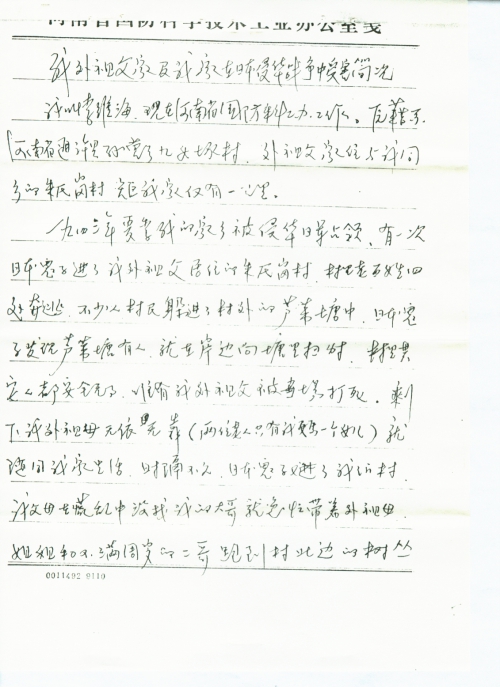 河南省国防科学技术工业办公室笺
我外祖父家及我家在日本侵华战争中受害简况
我叫李维海，现在河南省国防科工办工作。原籍是
河南省通许县孙营乡九女冢村，外祖父家住与我同
乡的朱氏岗村，距我家仅有一公里。
一九四三年夏当我的家乡被侵华日军占领，有一次
日本鬼子进了我外祖父居住的朱氏岗村，村里老百姓四
处奔逃，不少人村民躲进了村外的芦苇塘中，日本鬼
子发现芦苇塘有人，就在岸边向塘里扫射，村里其
它人都安全无事，惟有我外祖父被当场打死。剩
下我外祖母无依无靠（两位老人只有我母亲一个女儿）就
随同我家生活，时隔不久，日本鬼子又进了我们村，
我父母在慌乱中没找我的大哥就急忙带着外祖母、
姐姐和不满周岁的二哥跑到村北边的树丛
0011492 9110